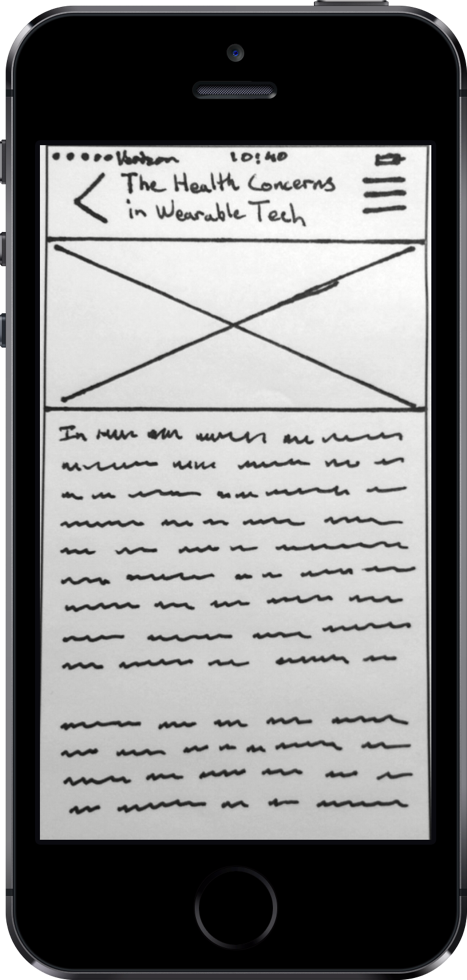 Verizon 10:40
The Health Concerns
in Wearable Tech
In